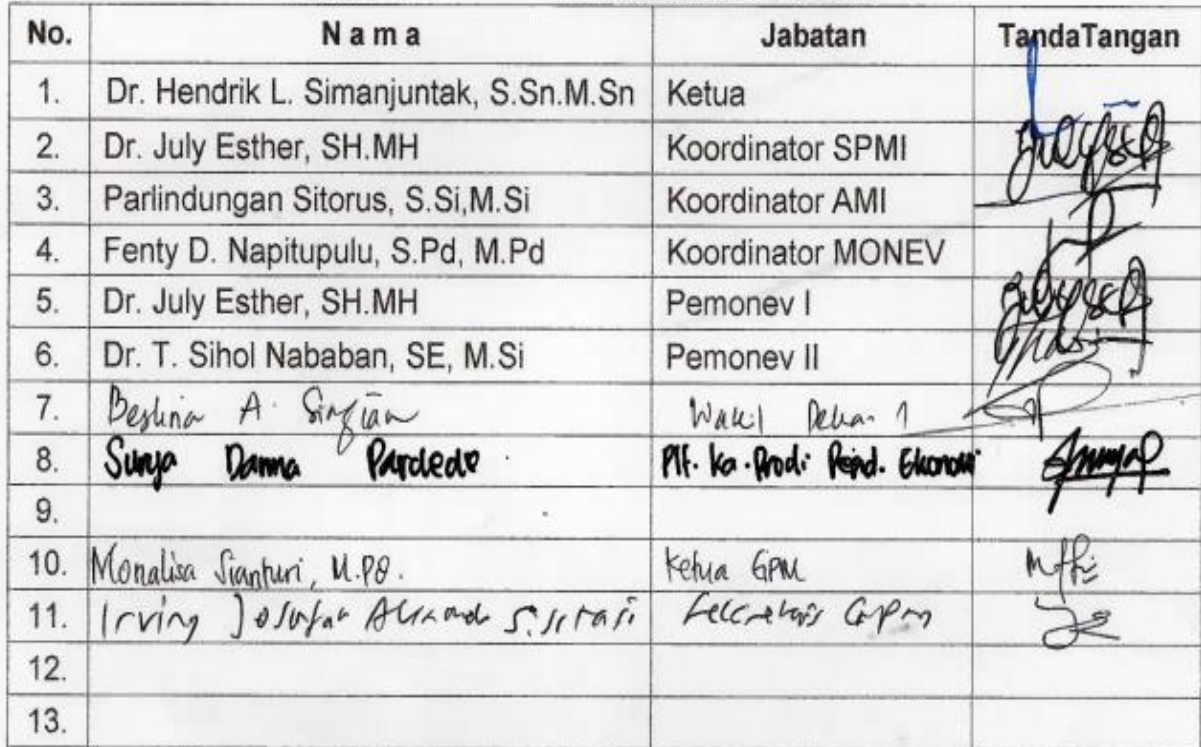 No. N a m a Jabatan TandaTangan
1. Dr. Hendrik L. Simanjuntak, S.Sn.M.Sn Ketua
2. Dr. July Esther, SH.MH Koordinator SPMI
3. Parlindungan Sitorus, S.Si,M.Si Koordinator AMI
4. Fenty D. Napitupulu, S.Pd, M.Pd Koordinator MONEV
5. Dr. July Esther, SH.MH Pemonev I
6. Dr. T. Sihol Nababan, SE, M.Si Pemonev II
7. A. Wakil Dekan 1
8. Surya Darma Pardede Plt. Ka. Prodi Pend. Ekonomi
9.
10. Monalisa Sianturi, M.Pd. Ketua GPM
11. Irving GPM
12.
13.